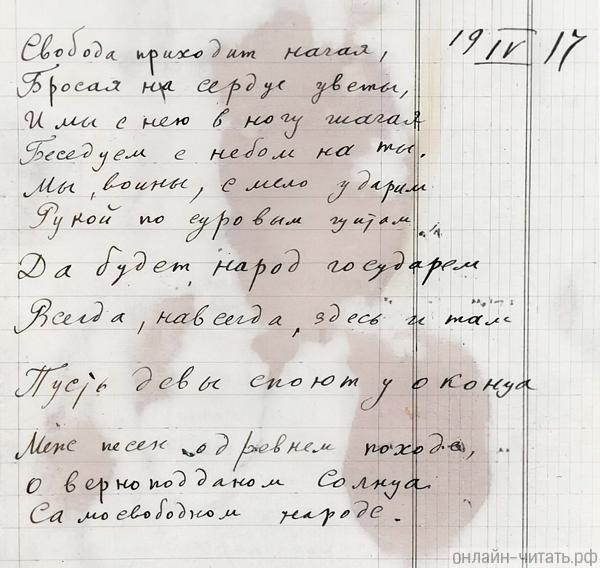 Свобода приходит нагая, 19 IV 17
Бросая на сердце цветы,
И мы с нею в ногу шагая
Беседуем с небом на ты.
Мы, воины, смело ударим
Рукой по суровым щитам
Да будет народ государем
Всегда, навсегда, здесь и там
Пусть девы споют у оконца
Меж песен о древнем походе,
О верноподданом Солнца
Самосвободном народе.
онлайн-читать.рф